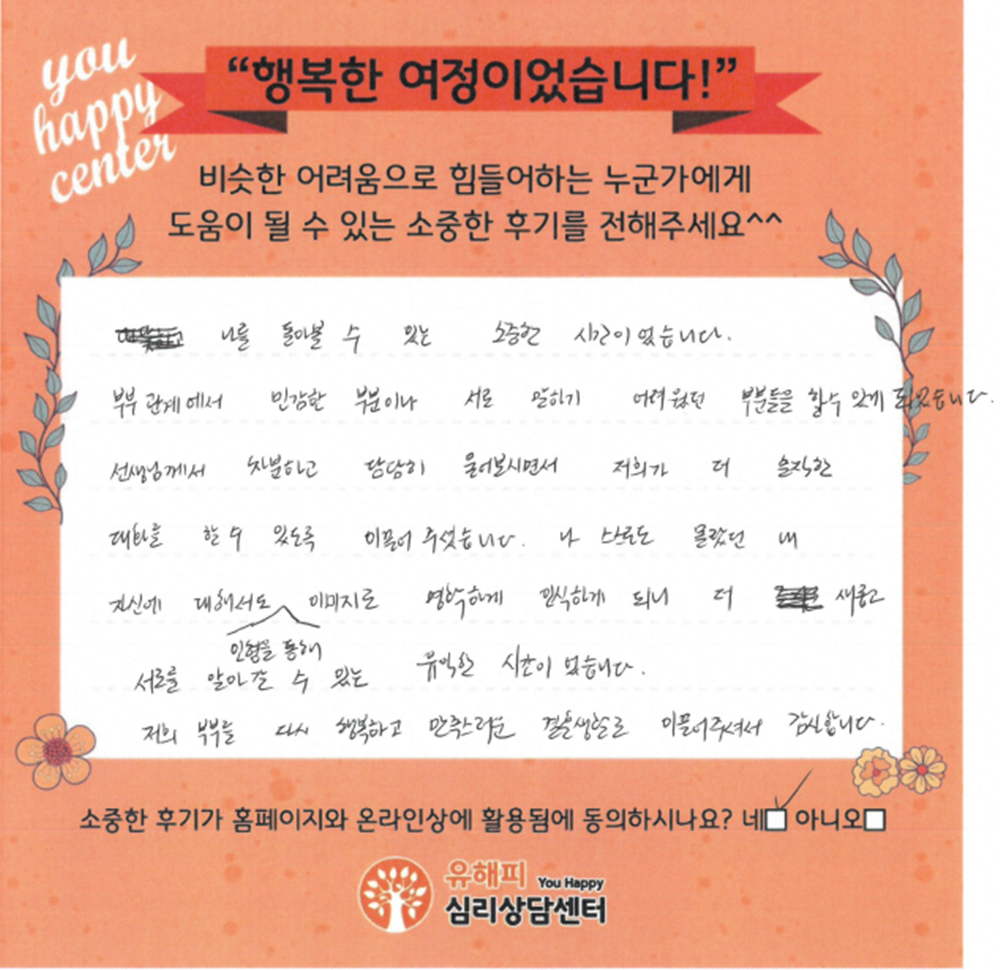 you
happy
center
“행복한 여정이었습니다!”
비슷한 어려움으로 힘들어하는 누군가에게
도움이 될 수 있는 소중한 후기를 전해주세요^^
나를 돌아볼 수 있는 소중한 시간이었습니다.
부부 관계에서 민감한 부분이나 서로 말하기 어려웠던 부분들을 할 수 있게 되었습니다.
선생님께서 차분하고 담담히 물어보시면서 저희가 더 솔직한
대화를 할 수 있도록 이끌어 주셨습니다. 나 스스로도 몰랐던 내
자신에 대해서도 이미지로 명확하게 인식하게 되니 더 새롭고
인형을 통해
서로를 알아갈 수 있는 유익한 시간이었습니다.
저희 부부를 다시 행복하고 만족스러운 결혼생활로 이끌어주셔서 감사합니다.
소중한 후기가 홈페이지와 온라인상에 활용됨에 동의하시나요? 네 아니오
유해피 You Happy
심리상담센터